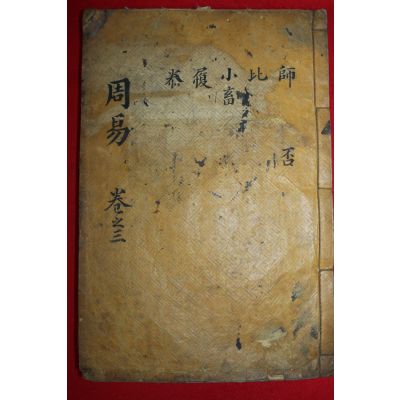 師 比 小畜 履 泰
否
周易 卷之三